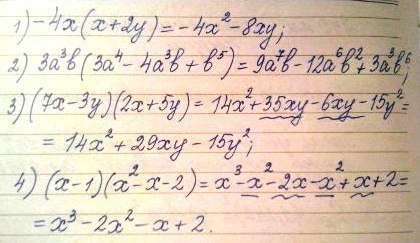 1) -4x(x+2y)=-4x²-8xy;
2) 3a³b(3a⁴-4a³b+b⁵)=9a⁷b-12a⁶b²+3a³b⁶
3) (7x-3y)(2x+5y)=14x²+35xy-6xy-15y²=
=14x²+29xy-15y²;
4) (x-1)(x²-x-2)=x³-x²-2x-x²+x+2=
=x³-2x²-x+2.